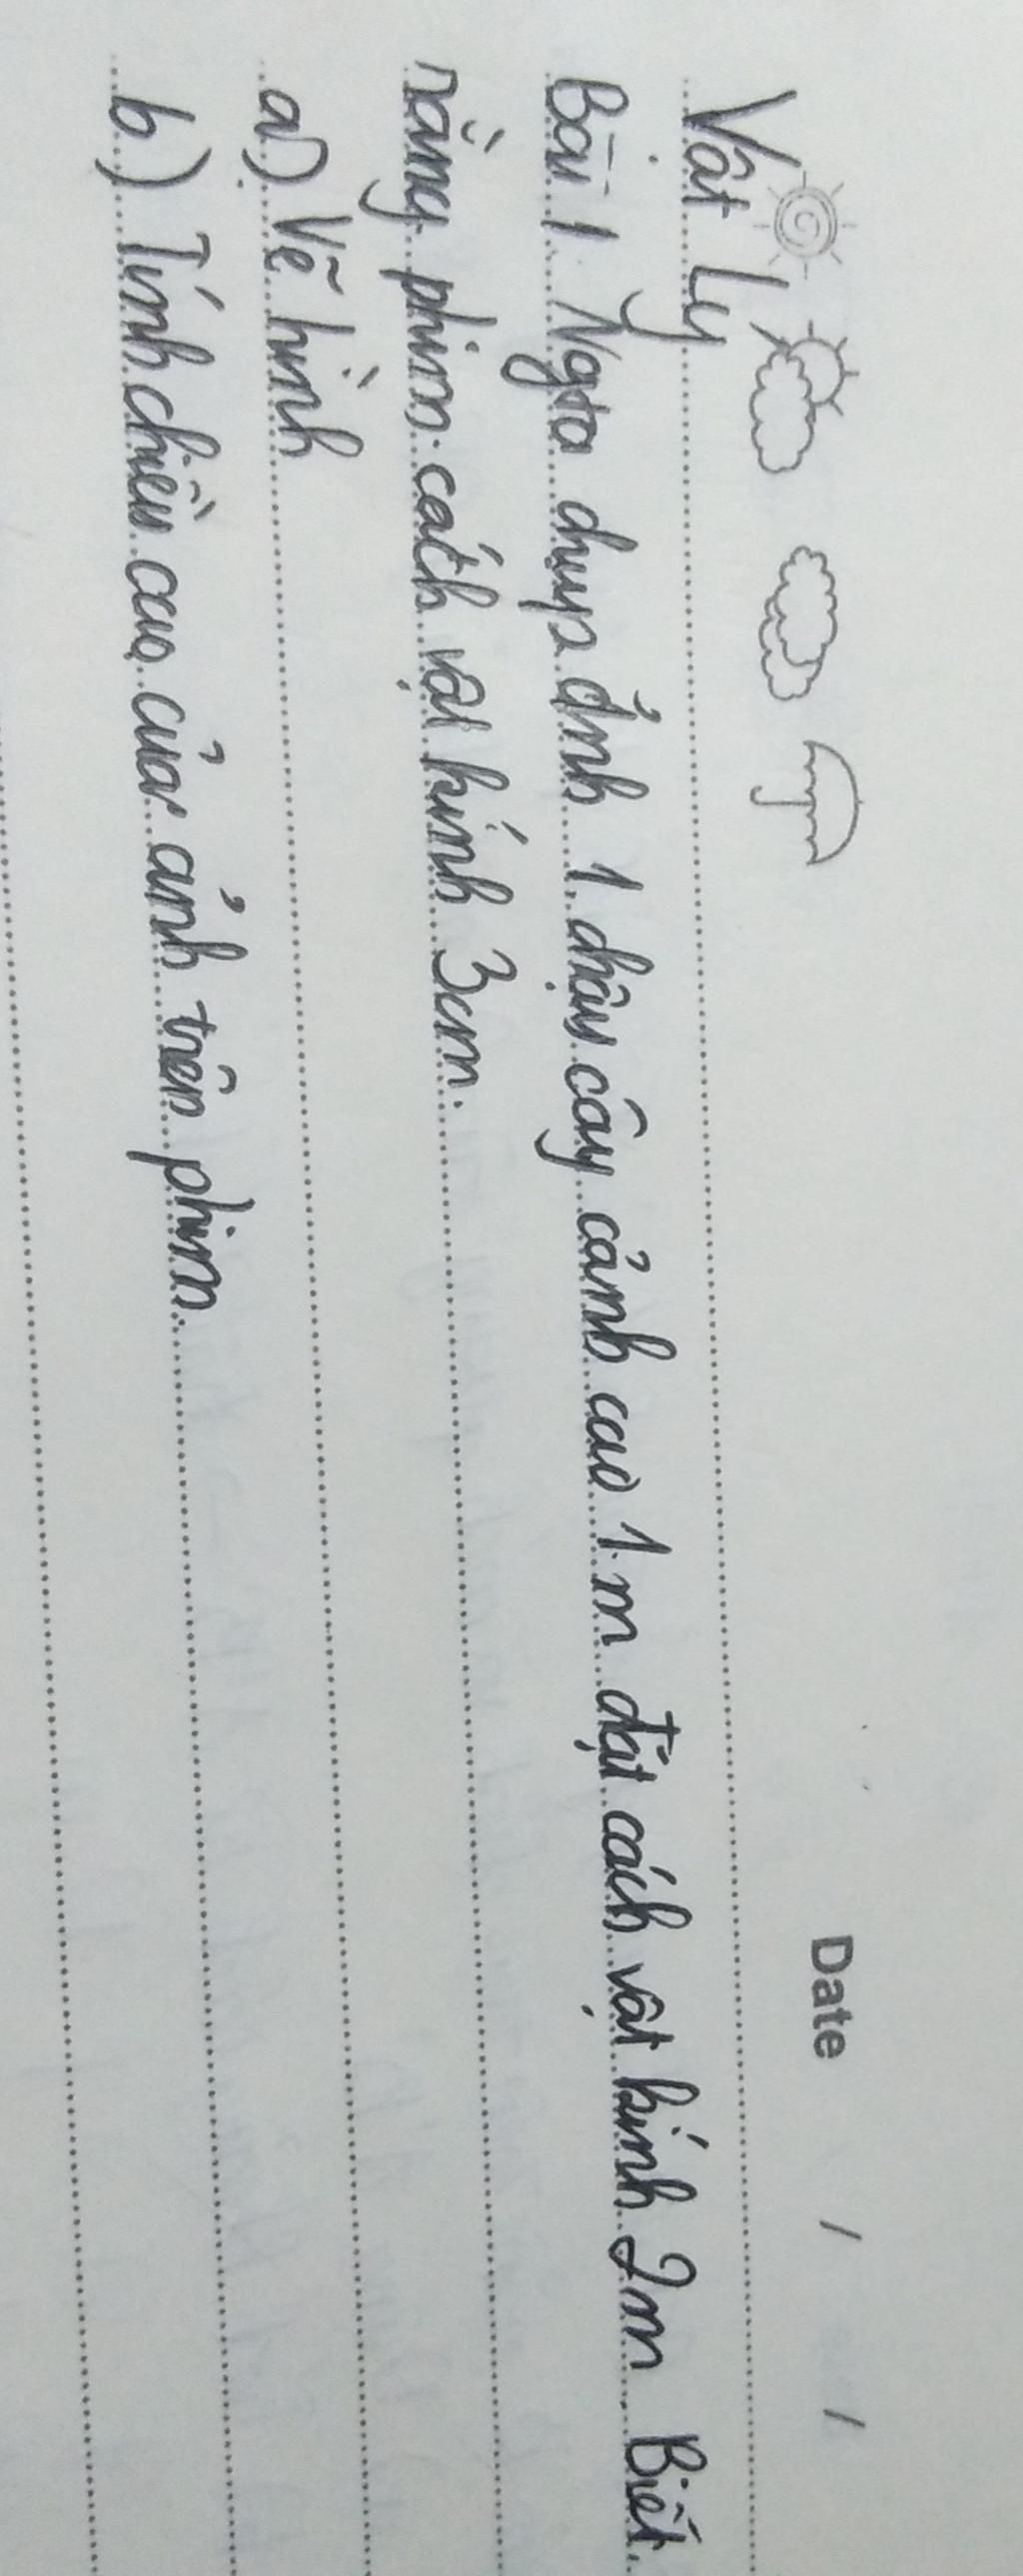 Date / /
Vật Lý
Bài 1. Ngta chụp ảnh 1 chậu cây cảnh cao 1m đặt cách vật kính 2m Biết
rằng phim cách vật kính 3cm.
a) Vẽ hình
b) Tính chiều cao của ảnh trên phim.